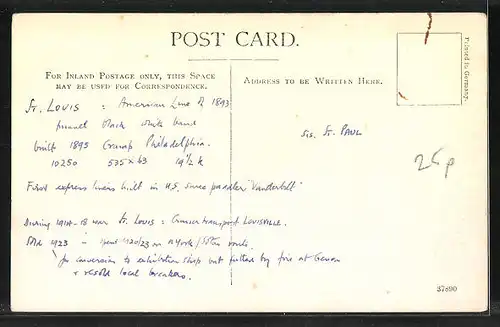 POST CARD.
FOR INLAND POSTAGE ONLY, THIS SPACE
MAY BE USED FOR CORRESPONDENCE.
ADDRESS TO BE WRITTEN HERE.
Printed in Germany.
St. LOUIS : American Line of 1893
funnel black white band
built 1895 Cramp Philadelphia.
10250 535 x 63 19½ k
Sis. St. PAUL
25p
First express liners built in U.S. since paddler "Vanderbilt"
During 1914-18 war St. Louis : transport LOUISVILLE.
Sold 1923 1920/23 on N York / route.
for conversion to exhibition ship but gutted by fire at Genoa
+ resold local breakers.
37890